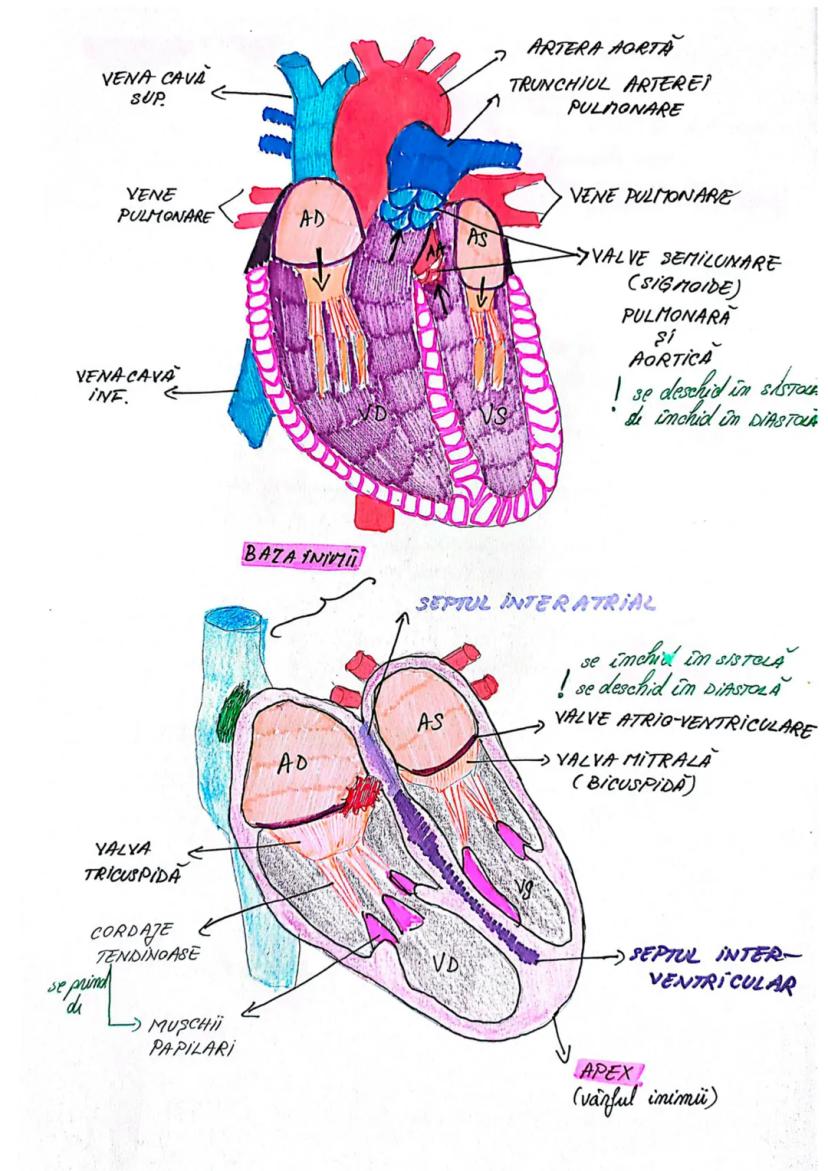 ARTERA AORTĂ
VENA CAVĂ
SUP.
TRUNCHIUL ARTEREI
PULMONARE
VENE
PULMONARE
AD
AS
VENE PULMONARE
AA
VALVE SEMILUNARE
(SIGMOIDE)
PULMONARĂ
ȘI
AORTICĂ
! se deschid în SISTOLĂ
se închid în DIASTOLĂ
VENA CAVĂ
INF.
VD
VS
BAZA INIMII
SEPTUL INTERATRIAL
se închid în SISTOLĂ
! se deschid în DIASTOLĂ
AS
VALVE ATRIO-VENTRICULARE
AD
VALVA MITRALĂ
(BICUSPIDĂ)
VALVA
TRICUSPIDĂ
VS
CORDAJE
TENDINOASE
VD
SEPTUL INTER-
VENTRICULAR
se prind
de
MUȘCHII
PAPILARI
APEX
(vârful inimii)